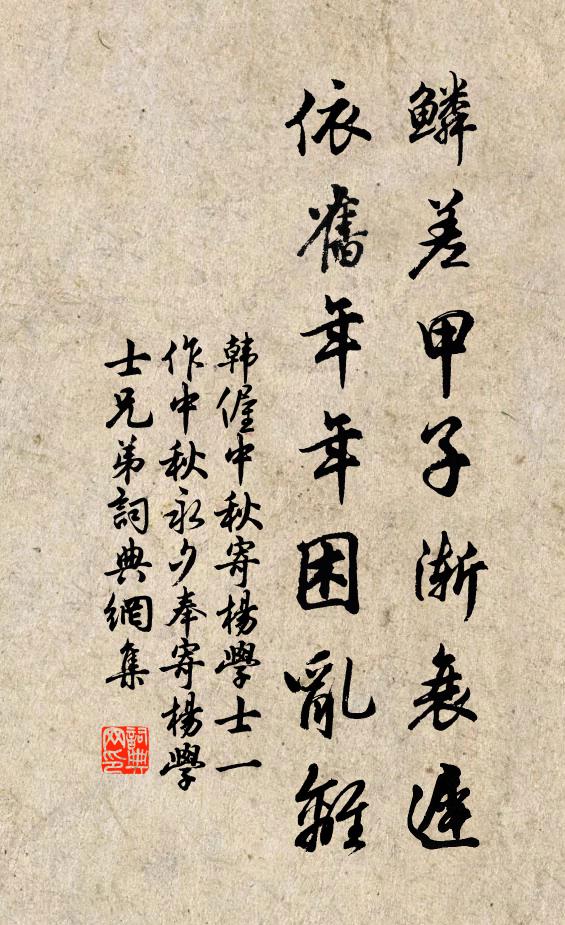 鱗差甲子漸衰遲
依舊年年困亂離
韩偓中秋寄楊學士一
作中秋永夕奉寄楊學
士兄弟詞典網集
詞典
网印